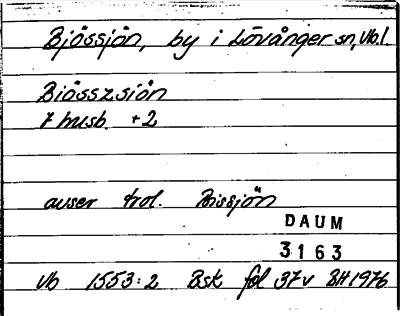 Bjössjön, by i Lövånger sn, Vb.l.
Biösszsiön
7 husb. +2
avser trol. Bissjön
DAUM
3163
Vb 1553:2 Bsk fol 37v BH 1976